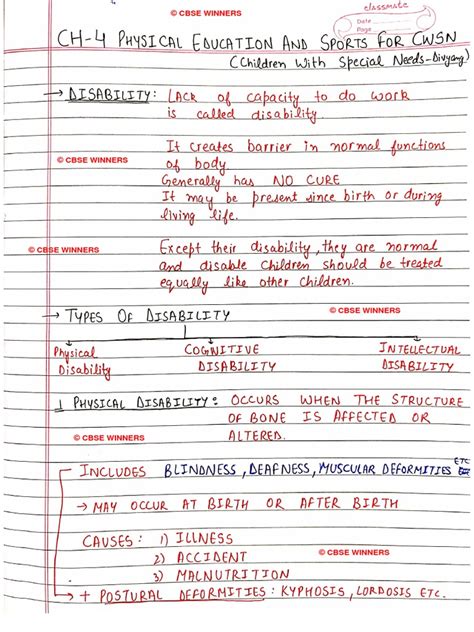 © CBSE WINNERS
classmate
Date
Page
CH-4 PHYSICAL EDUCATION AND SPORTS FOR CWSN
(Children With Special Needs-Divyang)
→ DISABILITY: LACK of capacity to do work
is called disability.
It creates barrier in normal functions
© CBSE WINNERS of body
Generally has NO CURE
It may be present since birth or during
living life.
© CBSE WINNERS Except their disability, they are normal
and disable children should be treated
equally like other children.
→ TYPES OF DISABILITY © CBSE WINNERS
Physical Disability
COGNITIVE DISABILITY
INTELLECTUAL DISABILITY
1 PHYSICAL DISABILITY: OCCURS WHEN THE STRUCTURE
OF BONE IS AFFECTED OR
© CBSE WINNERS ALTERED.
INCLUDES BLINDNESS, DEAFNESS, MUSCULAR DEFORMITIES ETC
→ MAY OCCUR AT BIRTH OR AFTER BIRTH
CAUSES: 1) ILLNESS
2) ACCIDENT © CBSE WINNERS
3) MALNUTRITION
→ + POSTURAL DEFORMITIES: KYPHOSIS, LORDOSIS ETC.